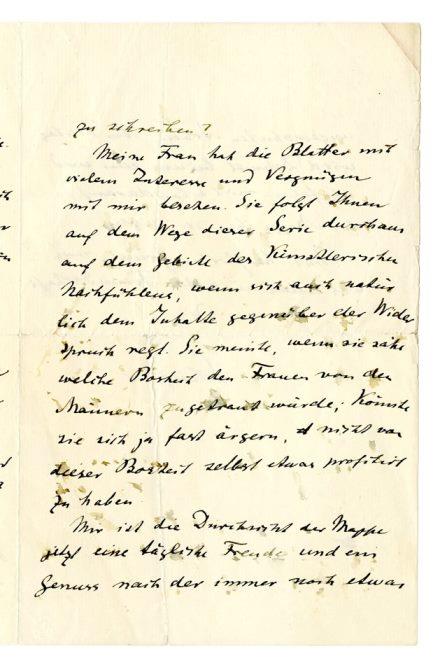 zu schreiben?
Meine Frau hat die Blätter mit
vielem Interesse und Vergnügen
mit mir besehen. Sie folgt Ihnen
auf dem Wege dieser Serie durchaus
auf dem Gebiete des Künstlerischen
Nachfühlens, wenn sich auch natür
lich dem Inhalte gegenüber der Wider
spruch regt. Sie meinte, wenn sie sähe
welche Bosheit den Frauen von den
Männern zugetraut würde, könnte
sie sich ja fast ärgern, nicht von
dieser Bosheit selbst etwas profitirt
zu haben
Mir ist die Durchsicht der Mappe
jetzt eine tägliche Freude und ein
Genuss nach der immer noch etwas